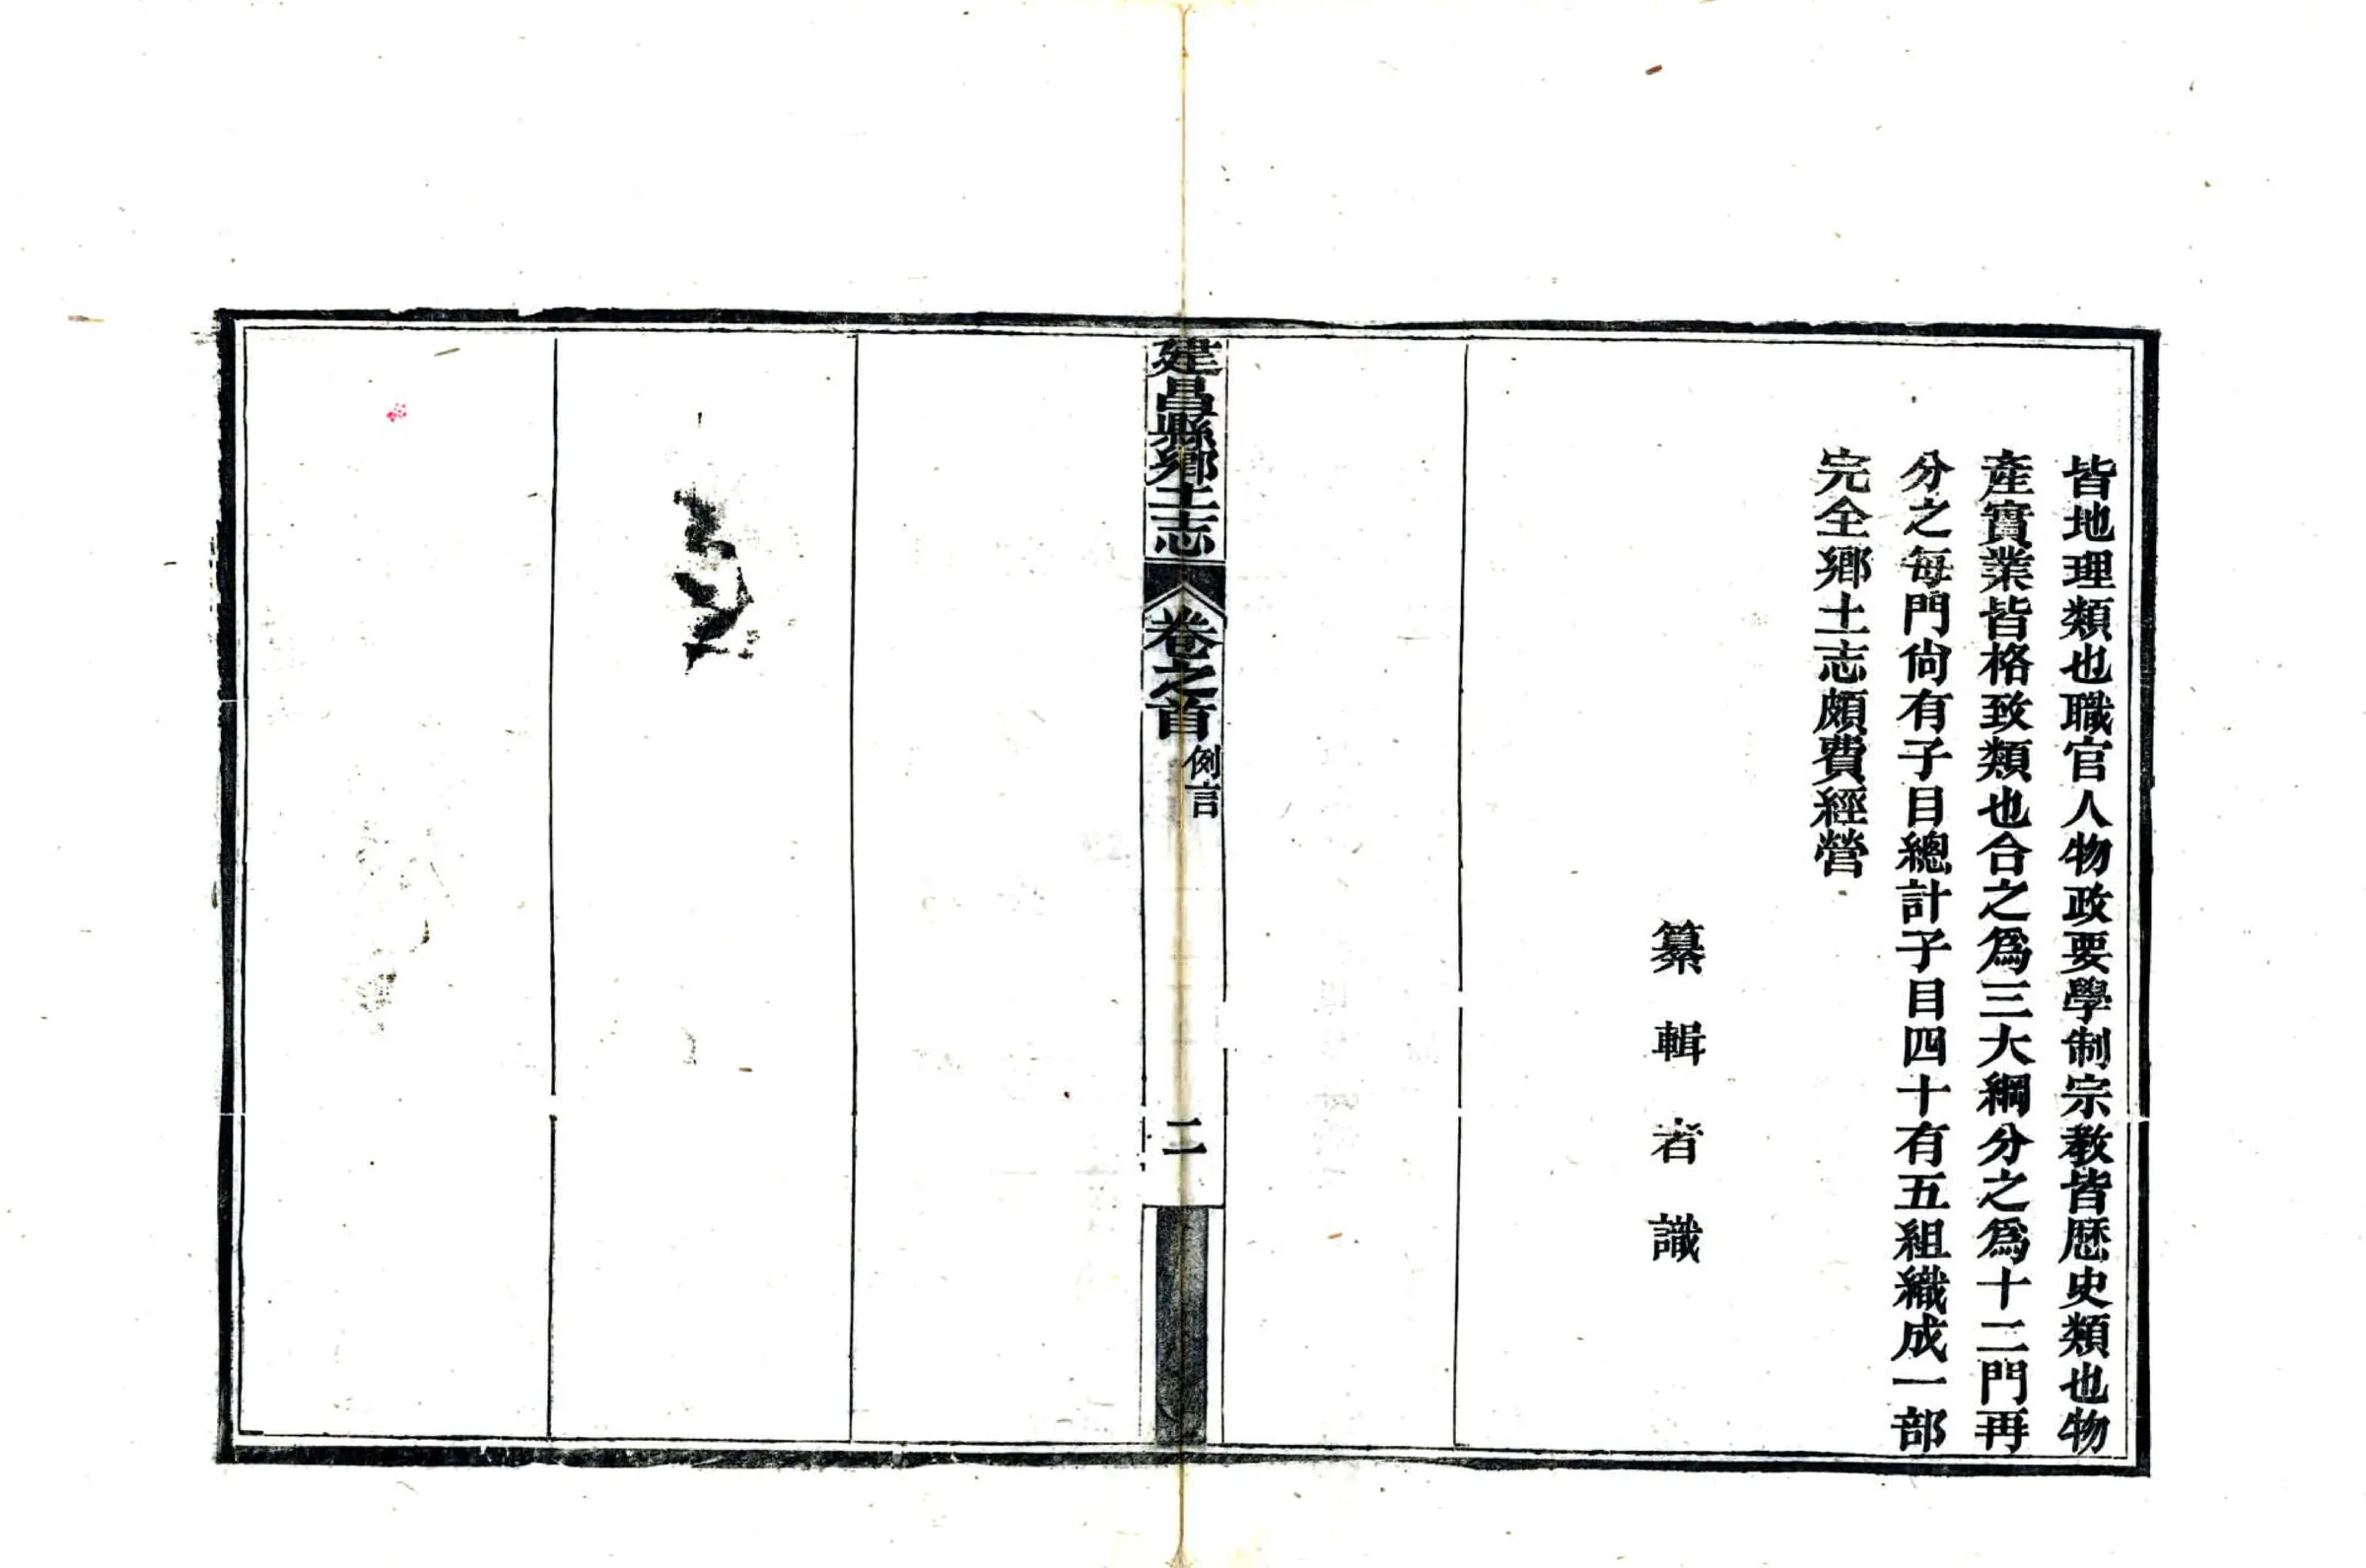 皆地理類也職官人物政要學制宗教皆歷史類也物
產實業皆格致類也合之爲三大綱分之爲十二門再
分之每門尙有子目總計子目四十有五組織成一部
完全鄉土志頗費經營
纂輯者識
建昌縣鄉土志
卷之首
例言
二